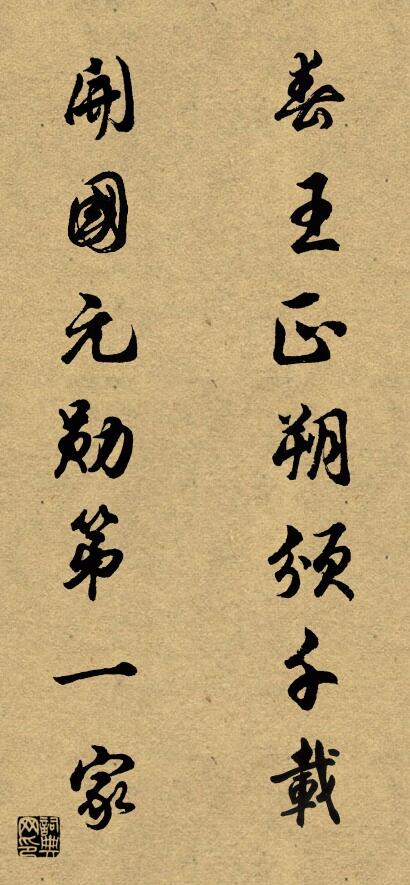 春王正朔頒千載
開國元勛第一家
詞典網印